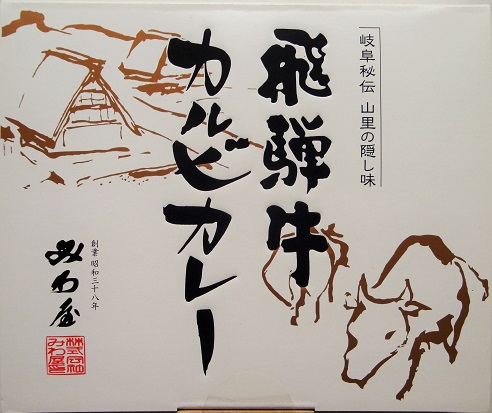 岐阜秘伝 山里の隠し味
飛騨牛
カルビカレー
創業 昭和三十八年
みわ屋
株式会社
みわ屋